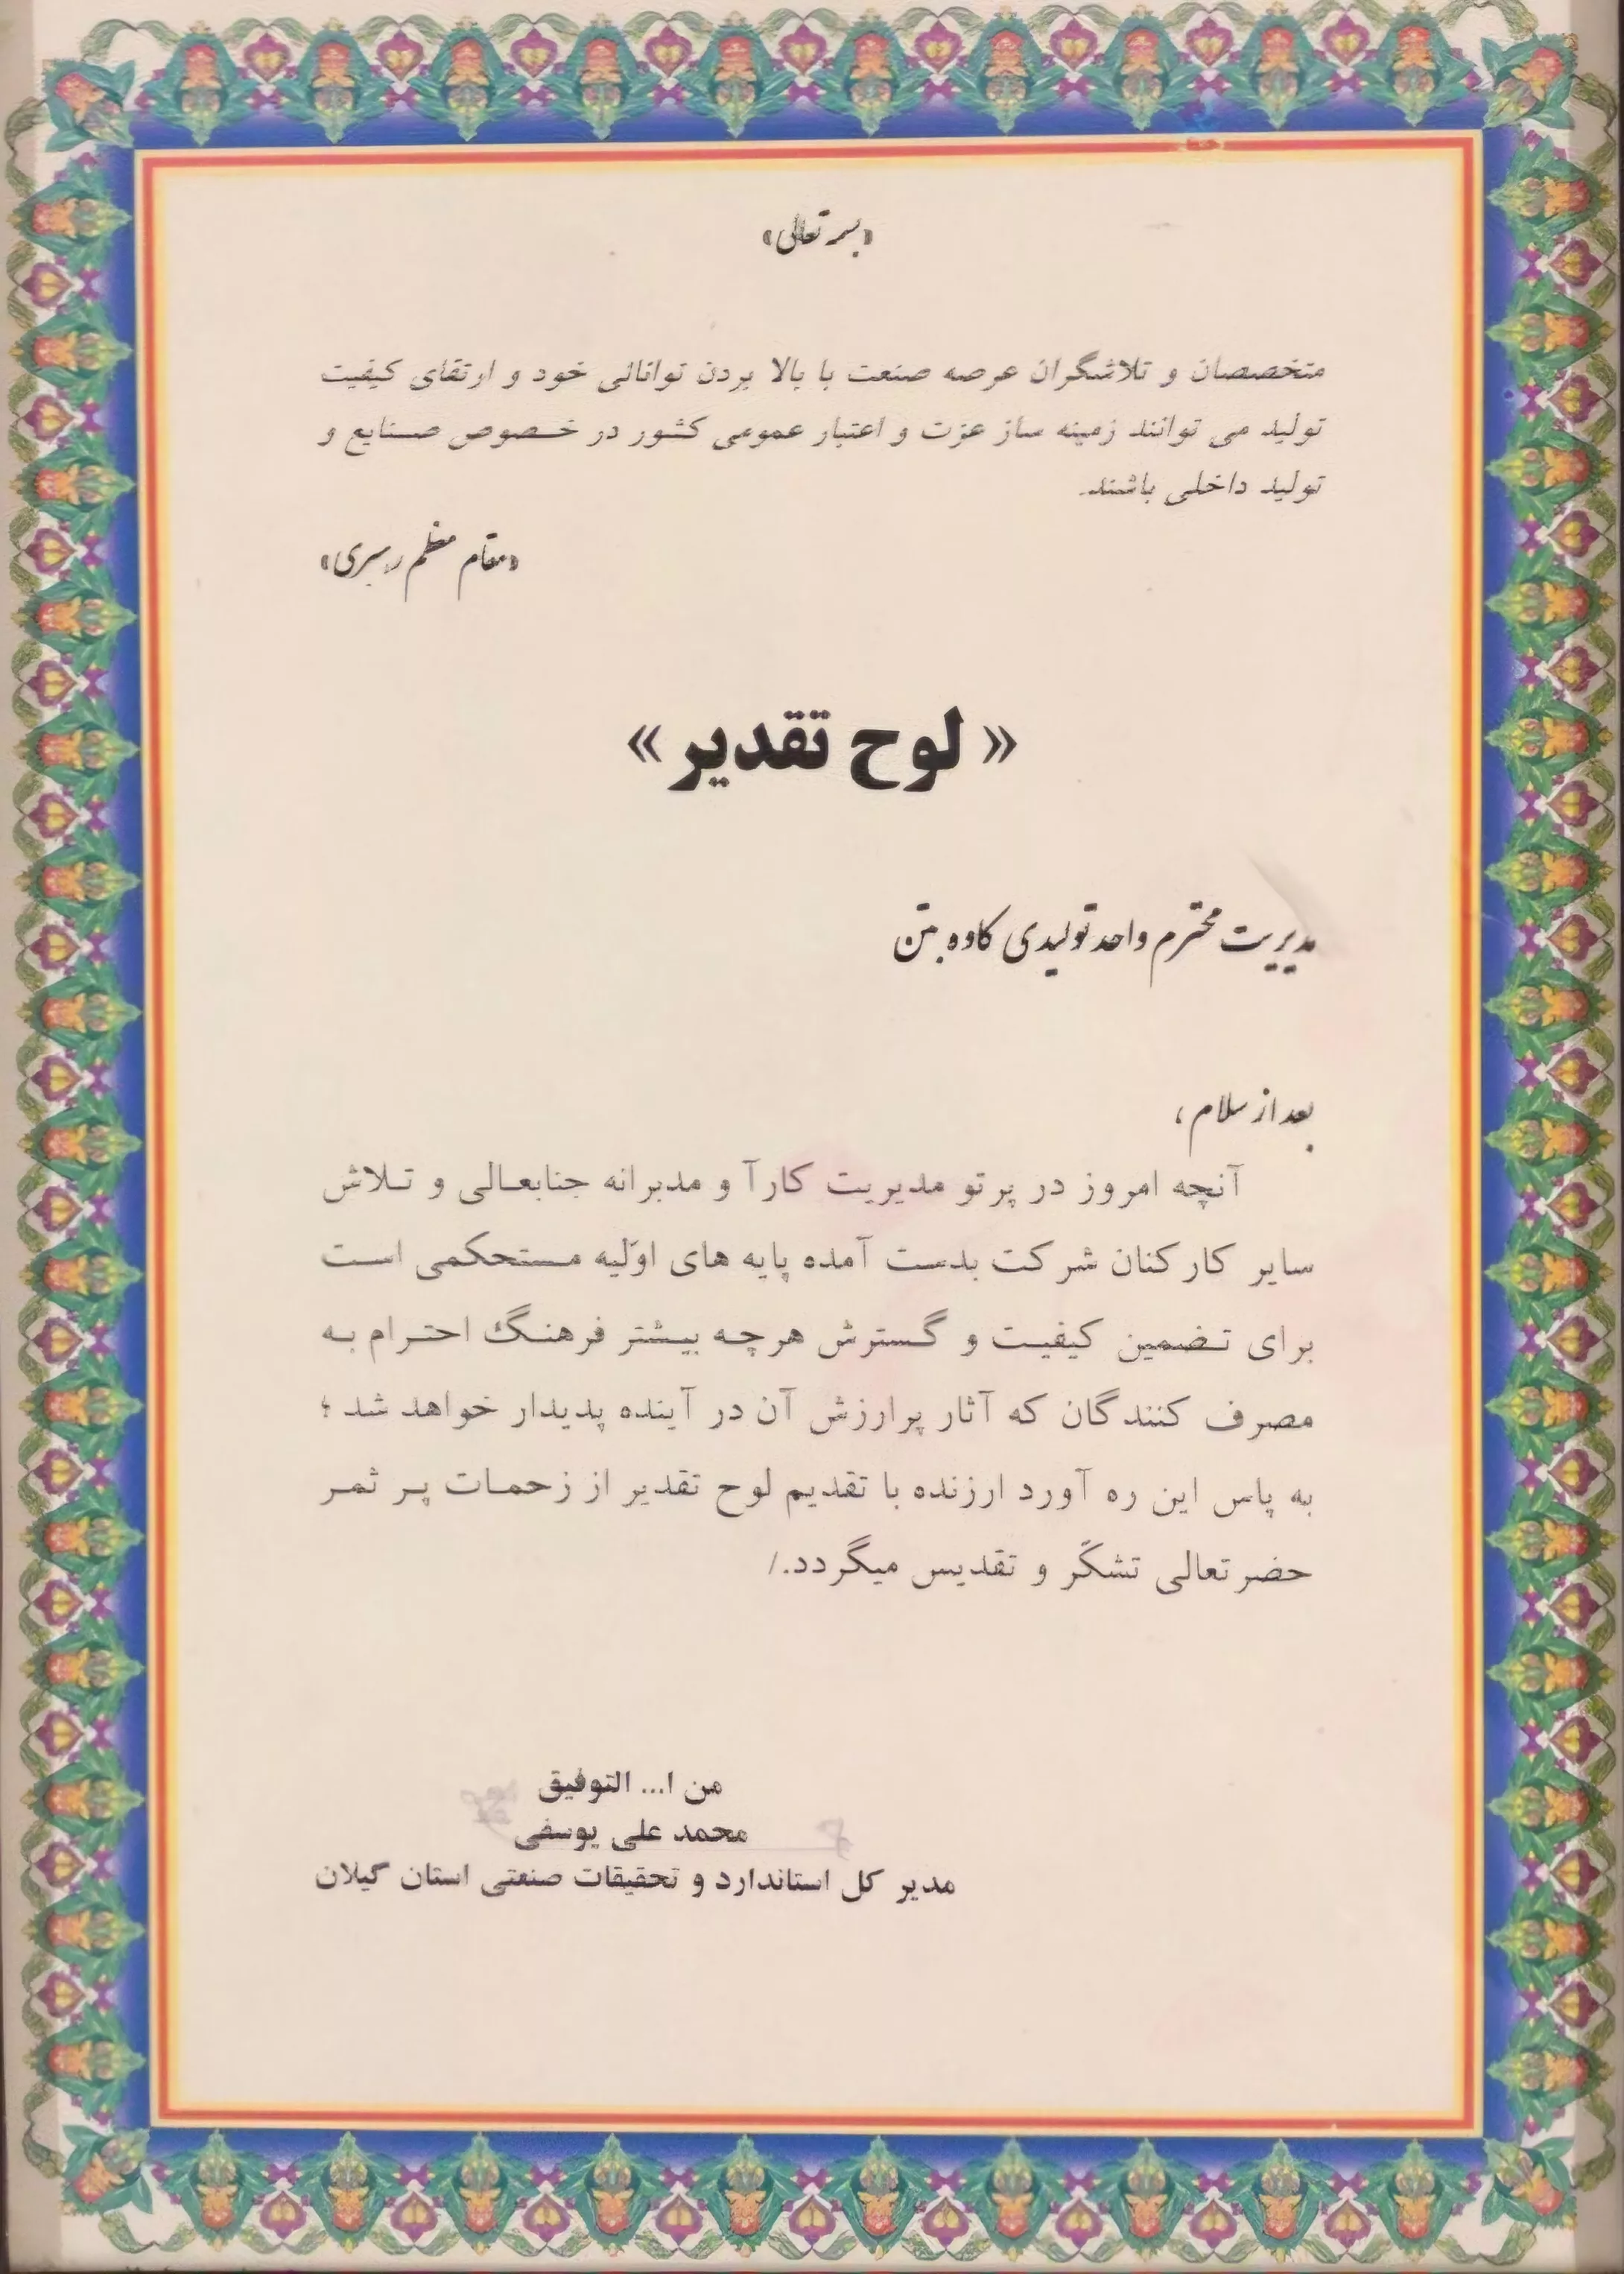 «بسمه تعالی»
متخصصان و تلاشگران عرصه صنعت با بالا بردن توانائی خود و ارتقای کیفیت
تولید می توانند زمینه ساز عزت و اعتبار عمومی کشور در خصوص صنایع و
تولید داخلی باشند.
«مقام معظم رهبری»
« لوح تقدیر »
مدیریت محترم واحد تولیدی کاوه بتن
بعد از سلام ،
آنچه امروز در پرتو مدیریت کارآ و مدبرانه جنابعالی و تلاش
سایر کارکنان شرکت بدست آمده پایه های اوّلیه مستحکمی است
برای تضمین کیفیت و گسترش هرچه بیشتر فرهنگ احترام به
مصرف کنندگان که آثار پرارزش آن در آینده پدیدار خواهد شد ؛
به پاس این ره آورد ارزنده با تقدیم لوح تقدیر از زحمات پر ثمر
حضرتعالی تشکّر و تقدیس میگردد./
من ا... التوفیق
محمد علی یوسفی
مدیر کل استاندارد و تحقیقات صنعتی استان گیلان